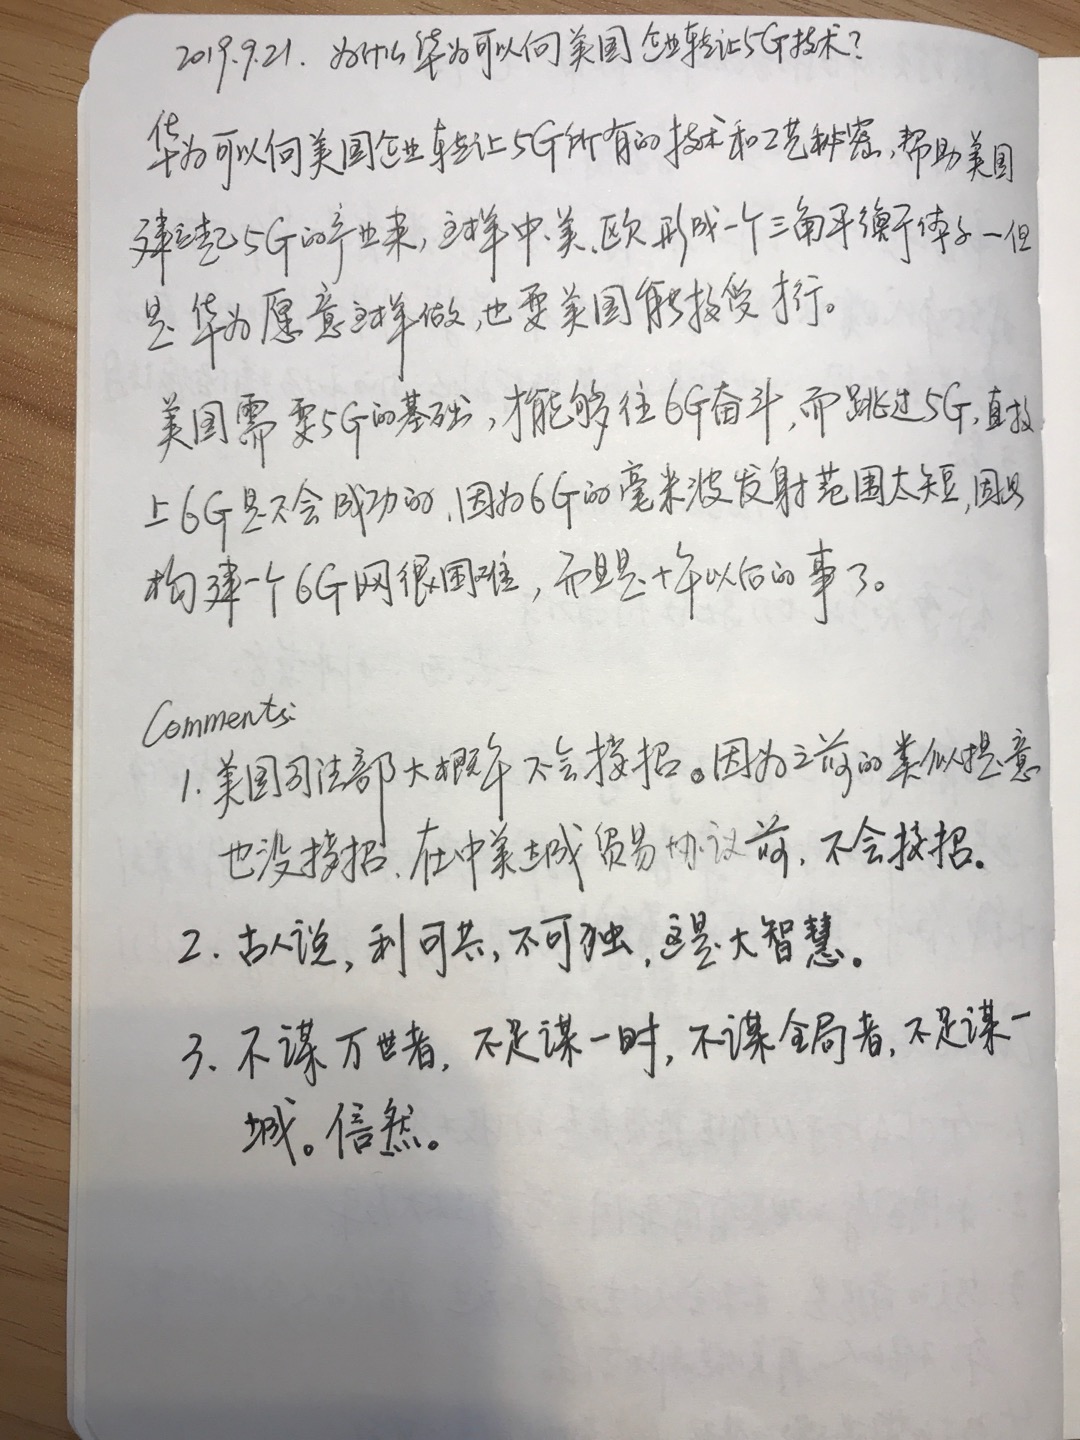 2019.9.21. 为什么华为可以向美国企业转让5G技术?
华为可以向美国企业转让5G所有的技术和工艺秘密,帮助美国
建立起5G的产业来,这样中、美、欧形成一个三角平衡
是华为愿意这样做,也要美国能接受才行。
美国需要5G的基础,才能够往6G奋斗,而跳过5G,直接
上6G是不会成功的,因为6G的毫米波发射范围太短,因此
构建一个6G网很困难,而且是十年以后的事了。
Comments:
1. 美国司法部大概率不会接招。因为之前的类似提意
也没接招,在中美达成贸易协议前,不会接招。
2. 古人说,利可共,不可独,这是大智慧。
3. 不谋万世者,不足谋一时,不谋全局者,不足谋一
域。信然。